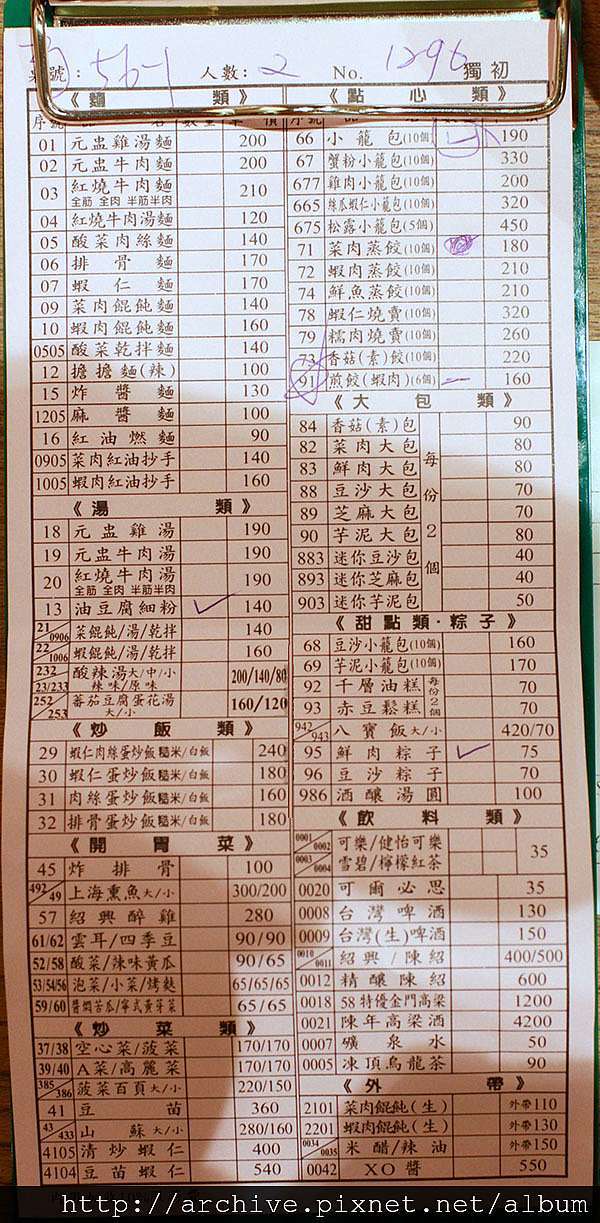 桌號: 56-1 人數: 2 No. 1296 獨初
《麵類》
01 元盅雞湯麵 200
02 元盅牛肉麵 200
03 紅燒牛肉麵 全筋 全肉 半筋半肉 210
04 紅燒牛肉湯麵 120
05 酸菜肉絲麵 140
06 排骨麵 170
07 蝦仁麵 170
09 菜肉餛飩麵 140
10 蝦肉餛飩麵 160
0505 酸菜乾拌麵 140
12 擔擔麵(辣) 100
15 炸醬麵 130
1205 麻醬麵 100
16 紅油燃麵 90
0905 菜肉紅油抄手 140
1005 蝦肉紅油抄手 160
《湯類》
18 元盅雞湯 190
19 元盅牛肉湯 190
20 紅燒牛肉湯 全筋 全肉 半筋半肉 190
13 油豆腐細粉 140
21/0906 菜餛飩/湯/乾拌 140
22/1006 蝦餛飩/湯/乾拌 160
232 23/233 酸辣湯大/中/小 辣味/原味 200/140/80
252/253 蕃茄豆腐蛋花湯 大/小 160/120
《炒飯類》
29 蝦仁肉絲蛋炒飯 糙米/白飯 240
30 蝦仁蛋炒飯 糙米/白飯 180
31 肉絲蛋炒飯 糙米/白飯 160
32 排骨蛋炒飯 糙米/白飯 180
《開胃菜》
45 炸排骨 100
492/49 上海熏魚大/小 300/200
57 紹興醉雞 280
61/62 雲耳/四季豆 90/90
52/58 酸菜/辣味黃瓜 90/65
53/54/56 泡菜/小菜/烤麩 65/65/65
59/60 醬燜苦瓜/寧式黃芽菜 65/65
《炒菜類》
37/38 空心菜/菠菜 170/170
39/40 A菜/高麗菜 170/170
385/386 菠菜百頁大/小 220/150
41 豆苗 360
43/433 山蘇大/小 280/160
4105 清炒蝦仁 400
4104 豆苗蝦仁 540
《點心類》
66 小籠包(10個) 190
67 蟹粉小籠包(10個) 330
677 雞肉小籠包(10個) 200
665 絲瓜蝦仁小籠包(10個) 320
675 松露小籠包(5個) 450
71 菜肉蒸餃(10個) 180
72 蝦肉蒸餃(10個) 210
74 鮮魚蒸餃(10個) 210
78 蝦仁燒賣(10個) 320
79 糯肉燒賣(10個) 260
73 香菇(素)餃(10個) 220
91 煎餃(蝦肉)(6個) 160
《大包類》
每份2個
84 香菇(素)包 90
82 菜肉大包 80
83 鮮肉大包 80
88 豆沙大包 70
89 芝麻大包 70
90 芋泥大包 80
883 迷你豆沙包 40
893 迷你芝麻包 40
903 迷你芋泥包 50
《甜點類·粽子》
68 豆沙小籠包(10個) 160
69 芋泥小籠包(10個) 170
92 千層油糕 每份2個 70
93 赤豆鬆糕 70
942/943 八寶飯大/小 420/70
95 鮮肉粽子 75
96 豆沙粽子 70
986 酒釀湯圓 100
《飲料類》
0001/0002 可樂/健怡可樂 35
0003/0004 雪碧/檸檬紅茶
0020 可爾必思 35
0008 台灣啤酒 130
0009 台灣(生)啤酒 150
0010/0011 紹興/陳紹 400/500
0012 精釀陳紹 600
0018 58特優金門高梁 1200
0021 陳年高梁酒 4200
0007 礦泉水 50
0005 凍頂烏龍茶 90
《外帶》
2101 菜肉餛飩(生) 外帶110
2201 蝦肉餛飩(生) 外帶130
0034/0035 米醋/辣油 外帶150
0042 XO醬 550
http://archive.pixnet.net/album